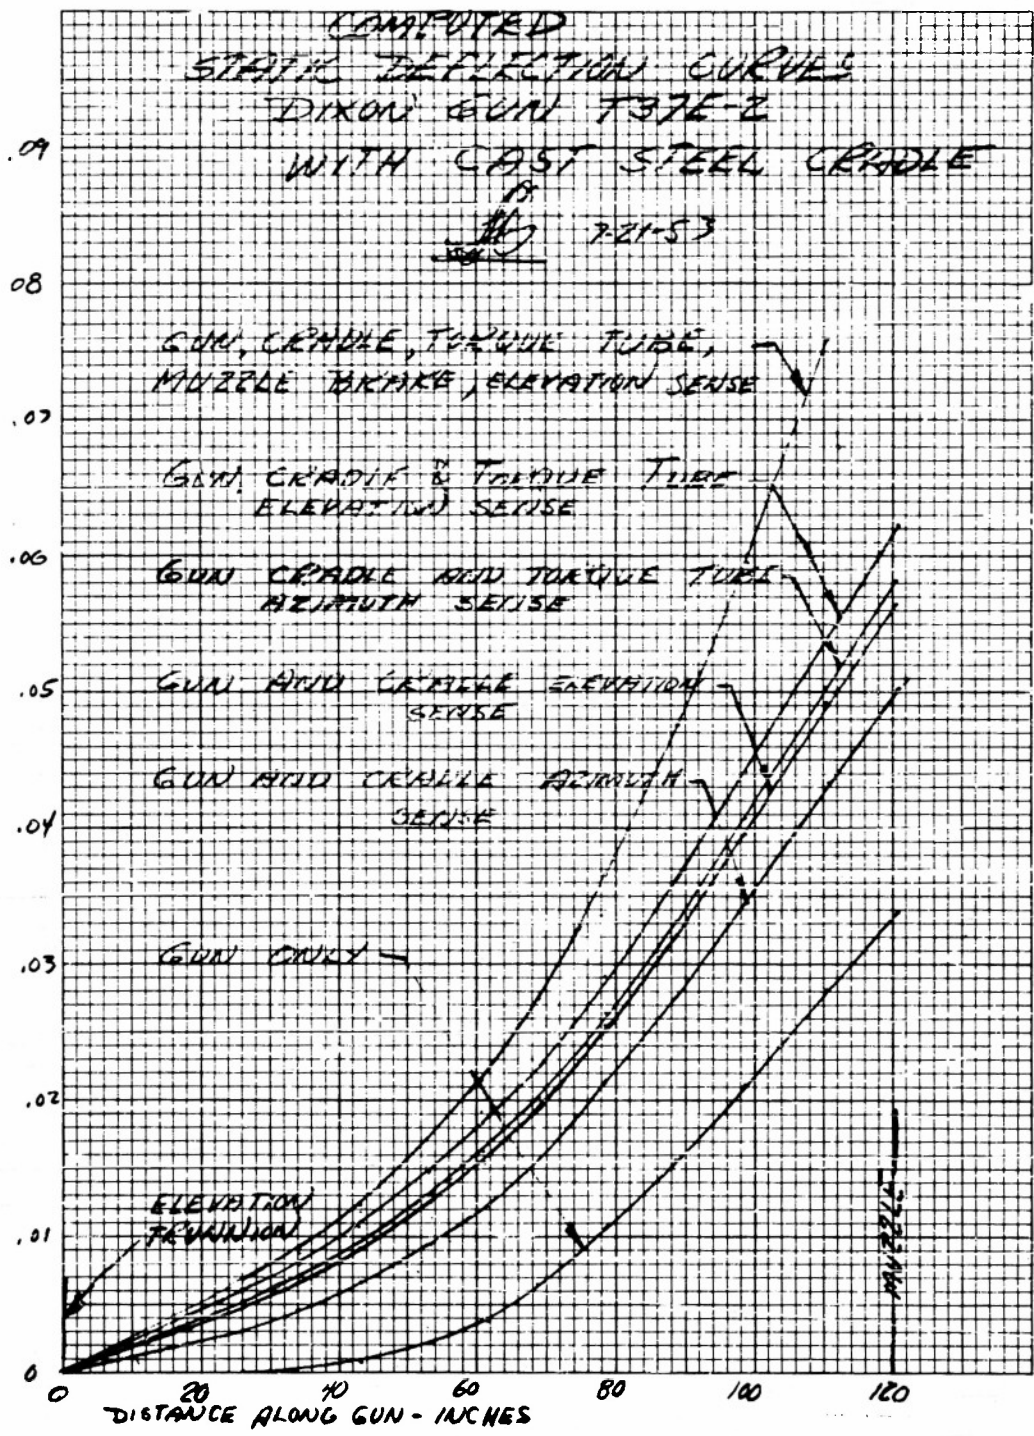 COMPUTED
STATIC DEFLECTION CURVES
DIXON GUN T37E-2
WITH CAST STEEL CRADLE
7-21-53
.09
08
.07
.06
.05
.04
.03
.02
.01
0
GUN, CRADLE, TORQUE TUBE,
MUZZLE BRAKE, ELEVATION SENSE
GUN, CRADLE & TORQUE TUBE
ELEVATION SENSE
GUN CRADLE AND TORQUE TUBE
AZIMUTH SENSE
GUN AND CRADLE ELEVATION
SENSE
GUN AND CRADLE AZIMUTH
SENSE
GUN ONLY
ELEVATION
TRUNNION
MUZZLE
0 20 40 60 80 100 120
DISTANCE ALONG GUN - INCHES